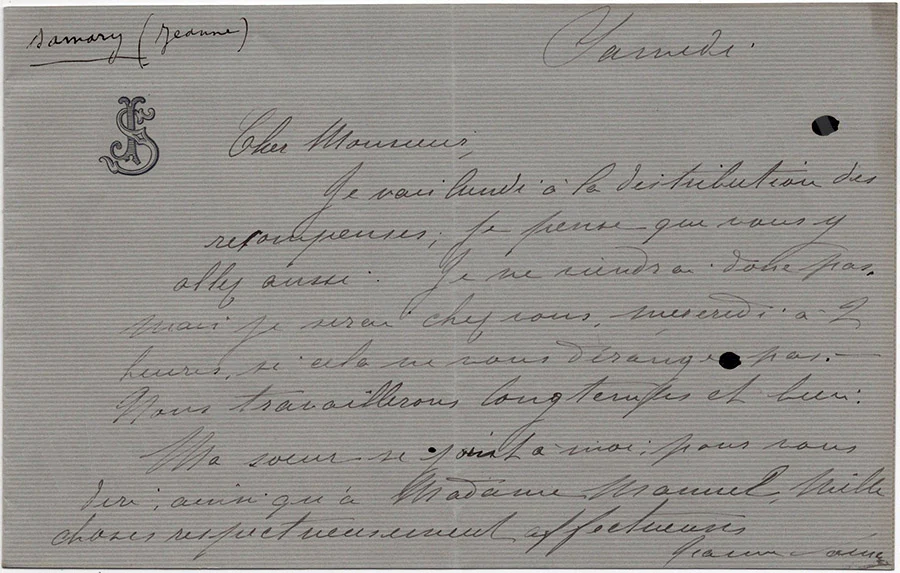 Samary (Jeanne)
Samedi.
JS
Cher Monsieur,
Je vais lundi à la distribution des
recompenses; je pense que vous y
allez aussi. Je ne viendrai donc pas,
mais je serai chez vous, mercredi à 2
heures, si cela ne vous dérange pas. —
Nous travaillerons longtemps et bien.
Ma sœur se joint à moi, pour vous
dire, ainsi qu'à Madame Manuel, Mille
choses respectueusement affectueuses
Jeanne Samary